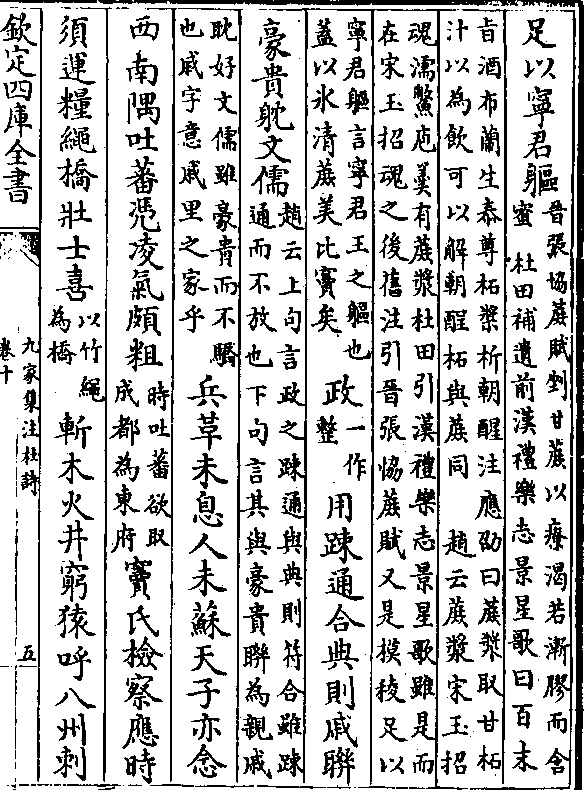 足以寧君軀晉張協蔗賦剉甘蔗以療渴若漸膠而含
蜜 杜田補遺前漢禮樂志景星歌曰百末
旨酒布蘭生泰尊柘漿析朝酲注應劭曰蔗漿取甘柘
汁以為飲可以解朝酲柘與蔗同 趙云蔗漿宋玉招
魂濡鱉庖羹有蔗漿杜田引漢禮樂志景星歌雖是而
在宋玉招魂之後舊注引晉張協蔗賦又是模稜足以
寧君軀言寧君王之軀也
蓋以氷清蔗美比竇矣
政一作整用疎通合典則戚聯
豪貴躭文儒趙云上句言政之疎通與典則符合雖疎
通而不放也下句言其與豪貴聯為親戚
耽好文儒雖豪貴而不驕
也戚字意戚里之家乎
兵革未息人未蘇天子亦念
西南隅吐蕃凴凌氣頗粗時吐蕃欲取
成都為東府竇氏檢察應時
須運糧繩橋壯士喜以竹繩
為橋斬木火井窮猿呼八州刺
欽定四庫全書
九家集注杜詩
卷十
五